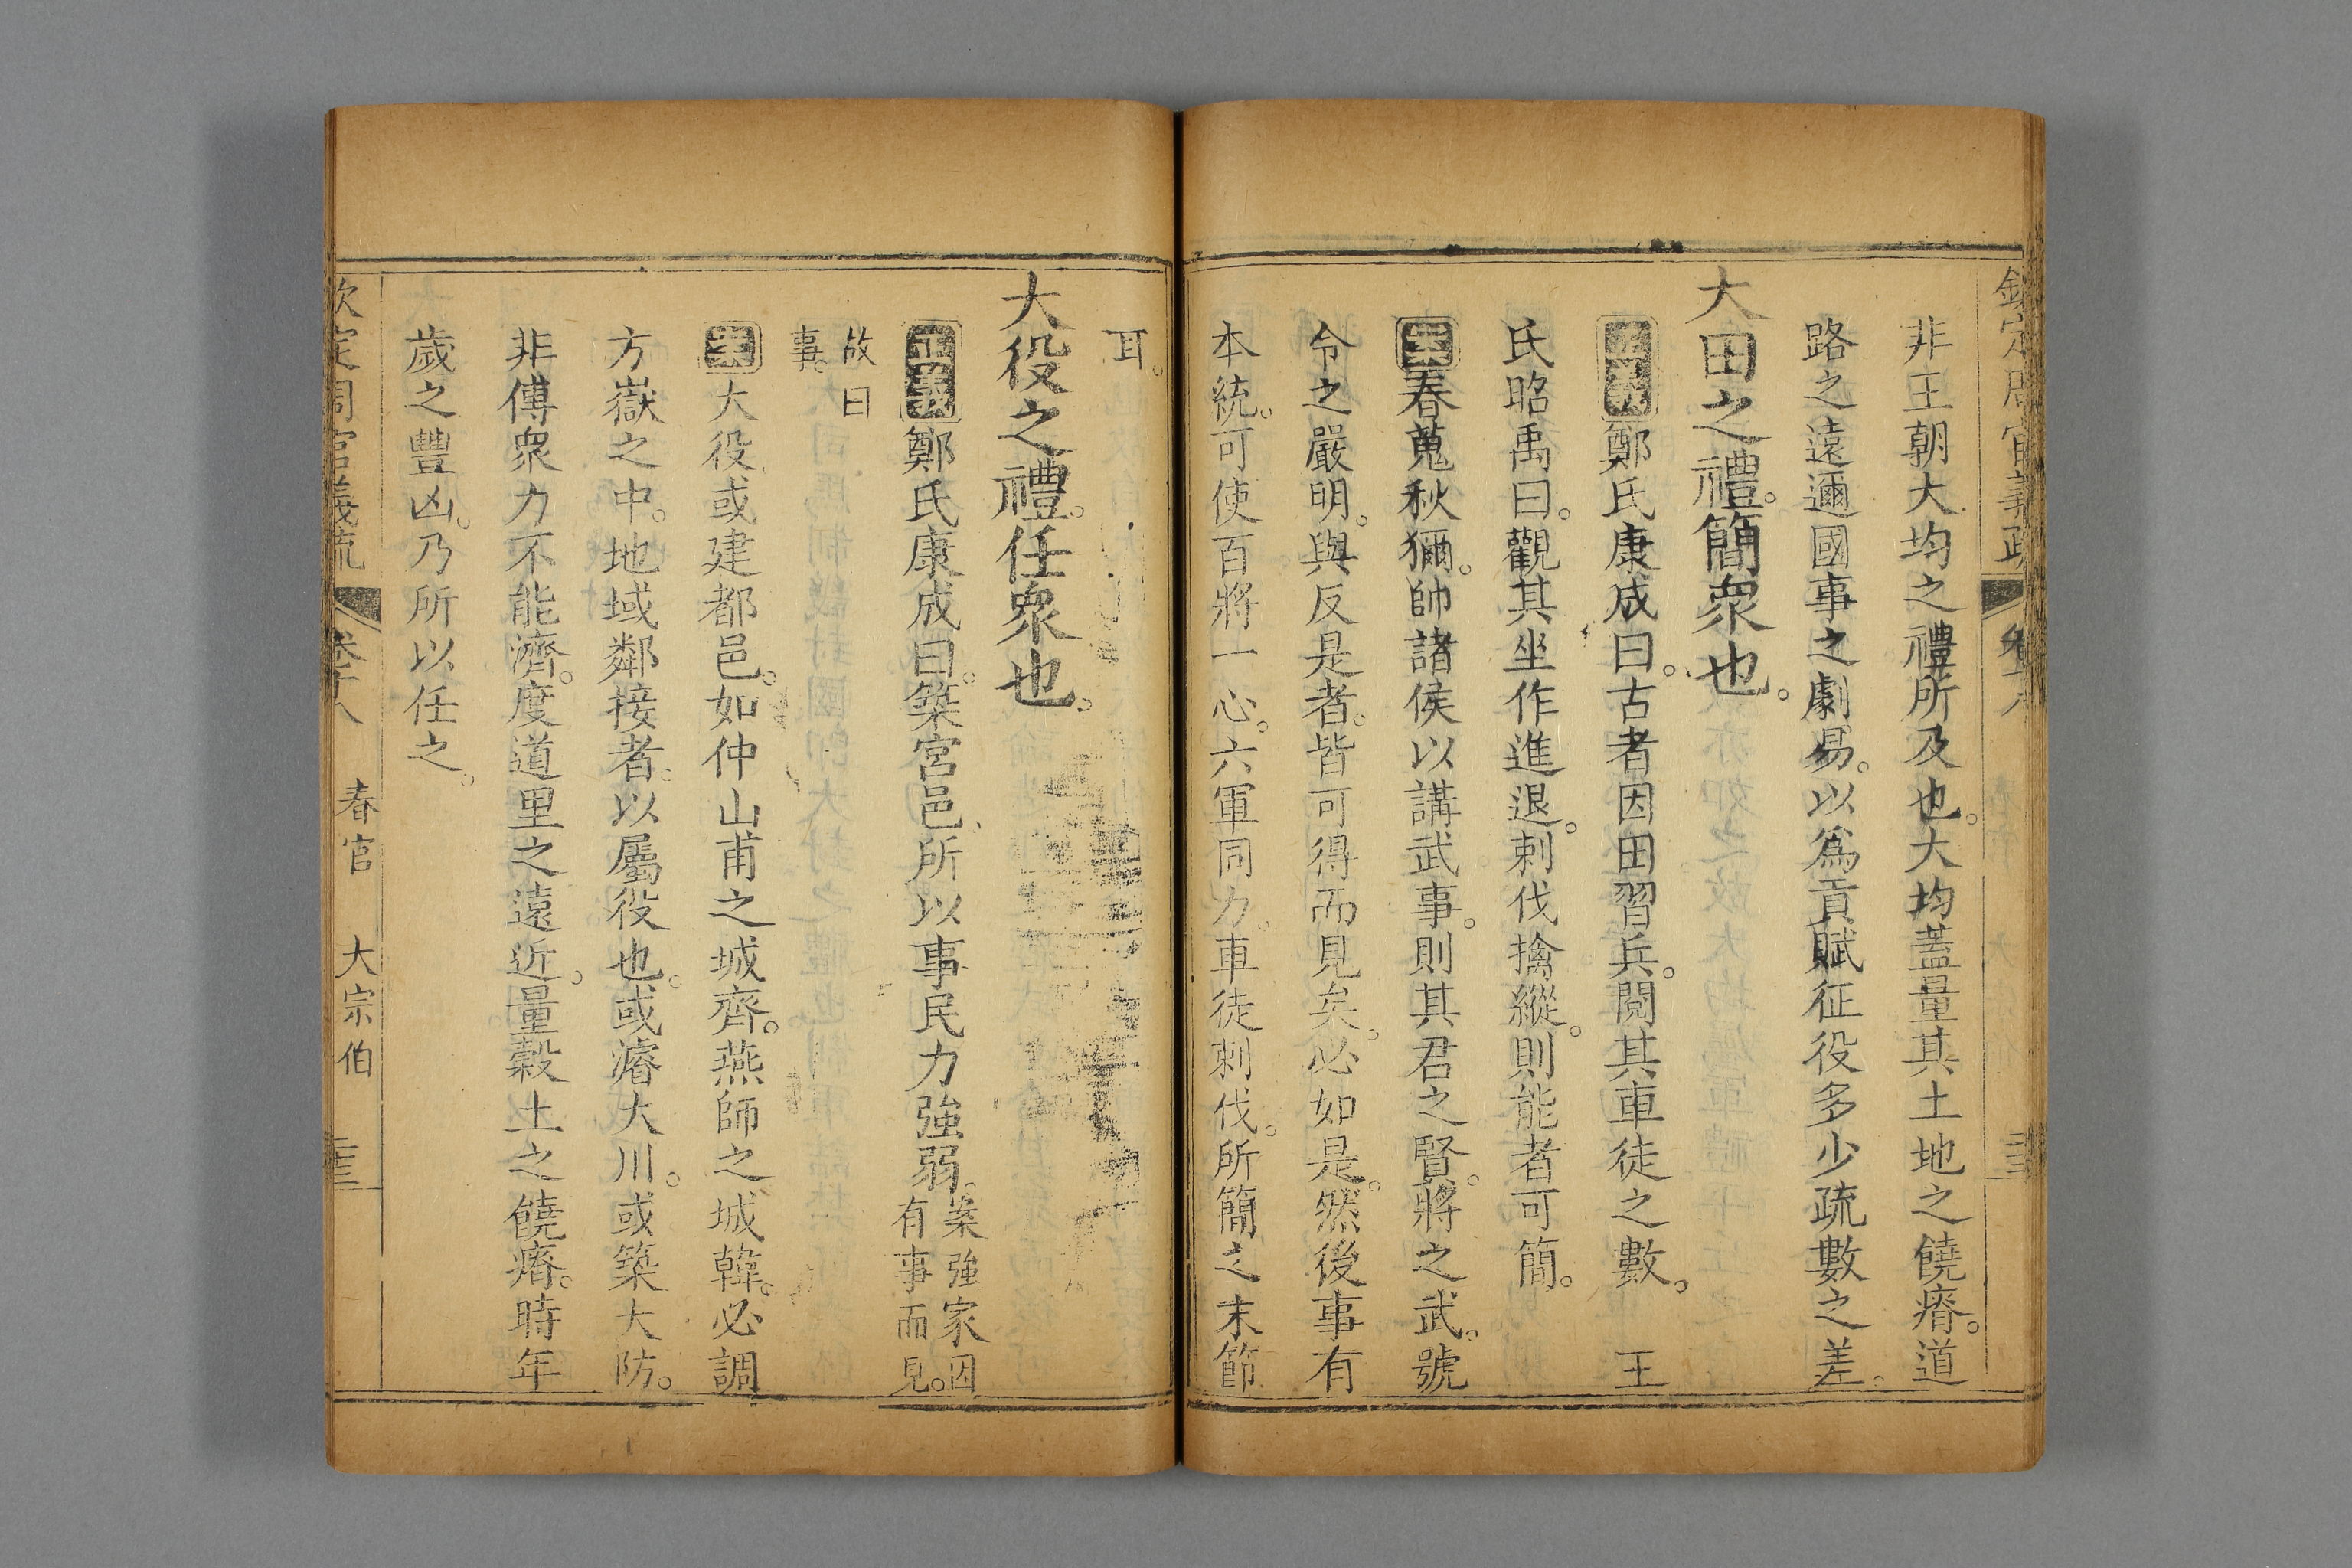 欽定周官義疏 卷十八
非王朝大均之禮所及也。大均蓋量其土地之饒瘠。道
路之遠邇國事之劇易。以爲貢賦征役多少疏數之差。
大田之禮。簡衆也。
正義鄭氏康成曰。古者因田習兵。閱其車徒之數。 王
氏昭禹曰。觀其坐作進退。刺伐擒縱。則能者可簡。
案春蒐秋獮。帥諸侯以講武事。則其君之賢。將之武。號
令之嚴明。與反是者。皆可得而見矣。必如是。然後事有
本統。可使百將一心。六軍同力。車徒刺伐。所簡之末節
耳。
大役之禮。任衆也。
正義鄭氏康成曰。築宮邑。所以事民力強弱。案強家因
有事而見。
故曰
事。
案大役或建都邑。如仲山甫之城齊。燕師之城韓。必調
方嶽之中。地域鄰接者。以屬役也。或濬大川。或築大防。
非傅衆力不能濟。度道里之遠近。量穀土之饒瘠。時年
歲之豐凶。乃所以任之。
欽定周官義疏 卷十八 春官 大宗伯